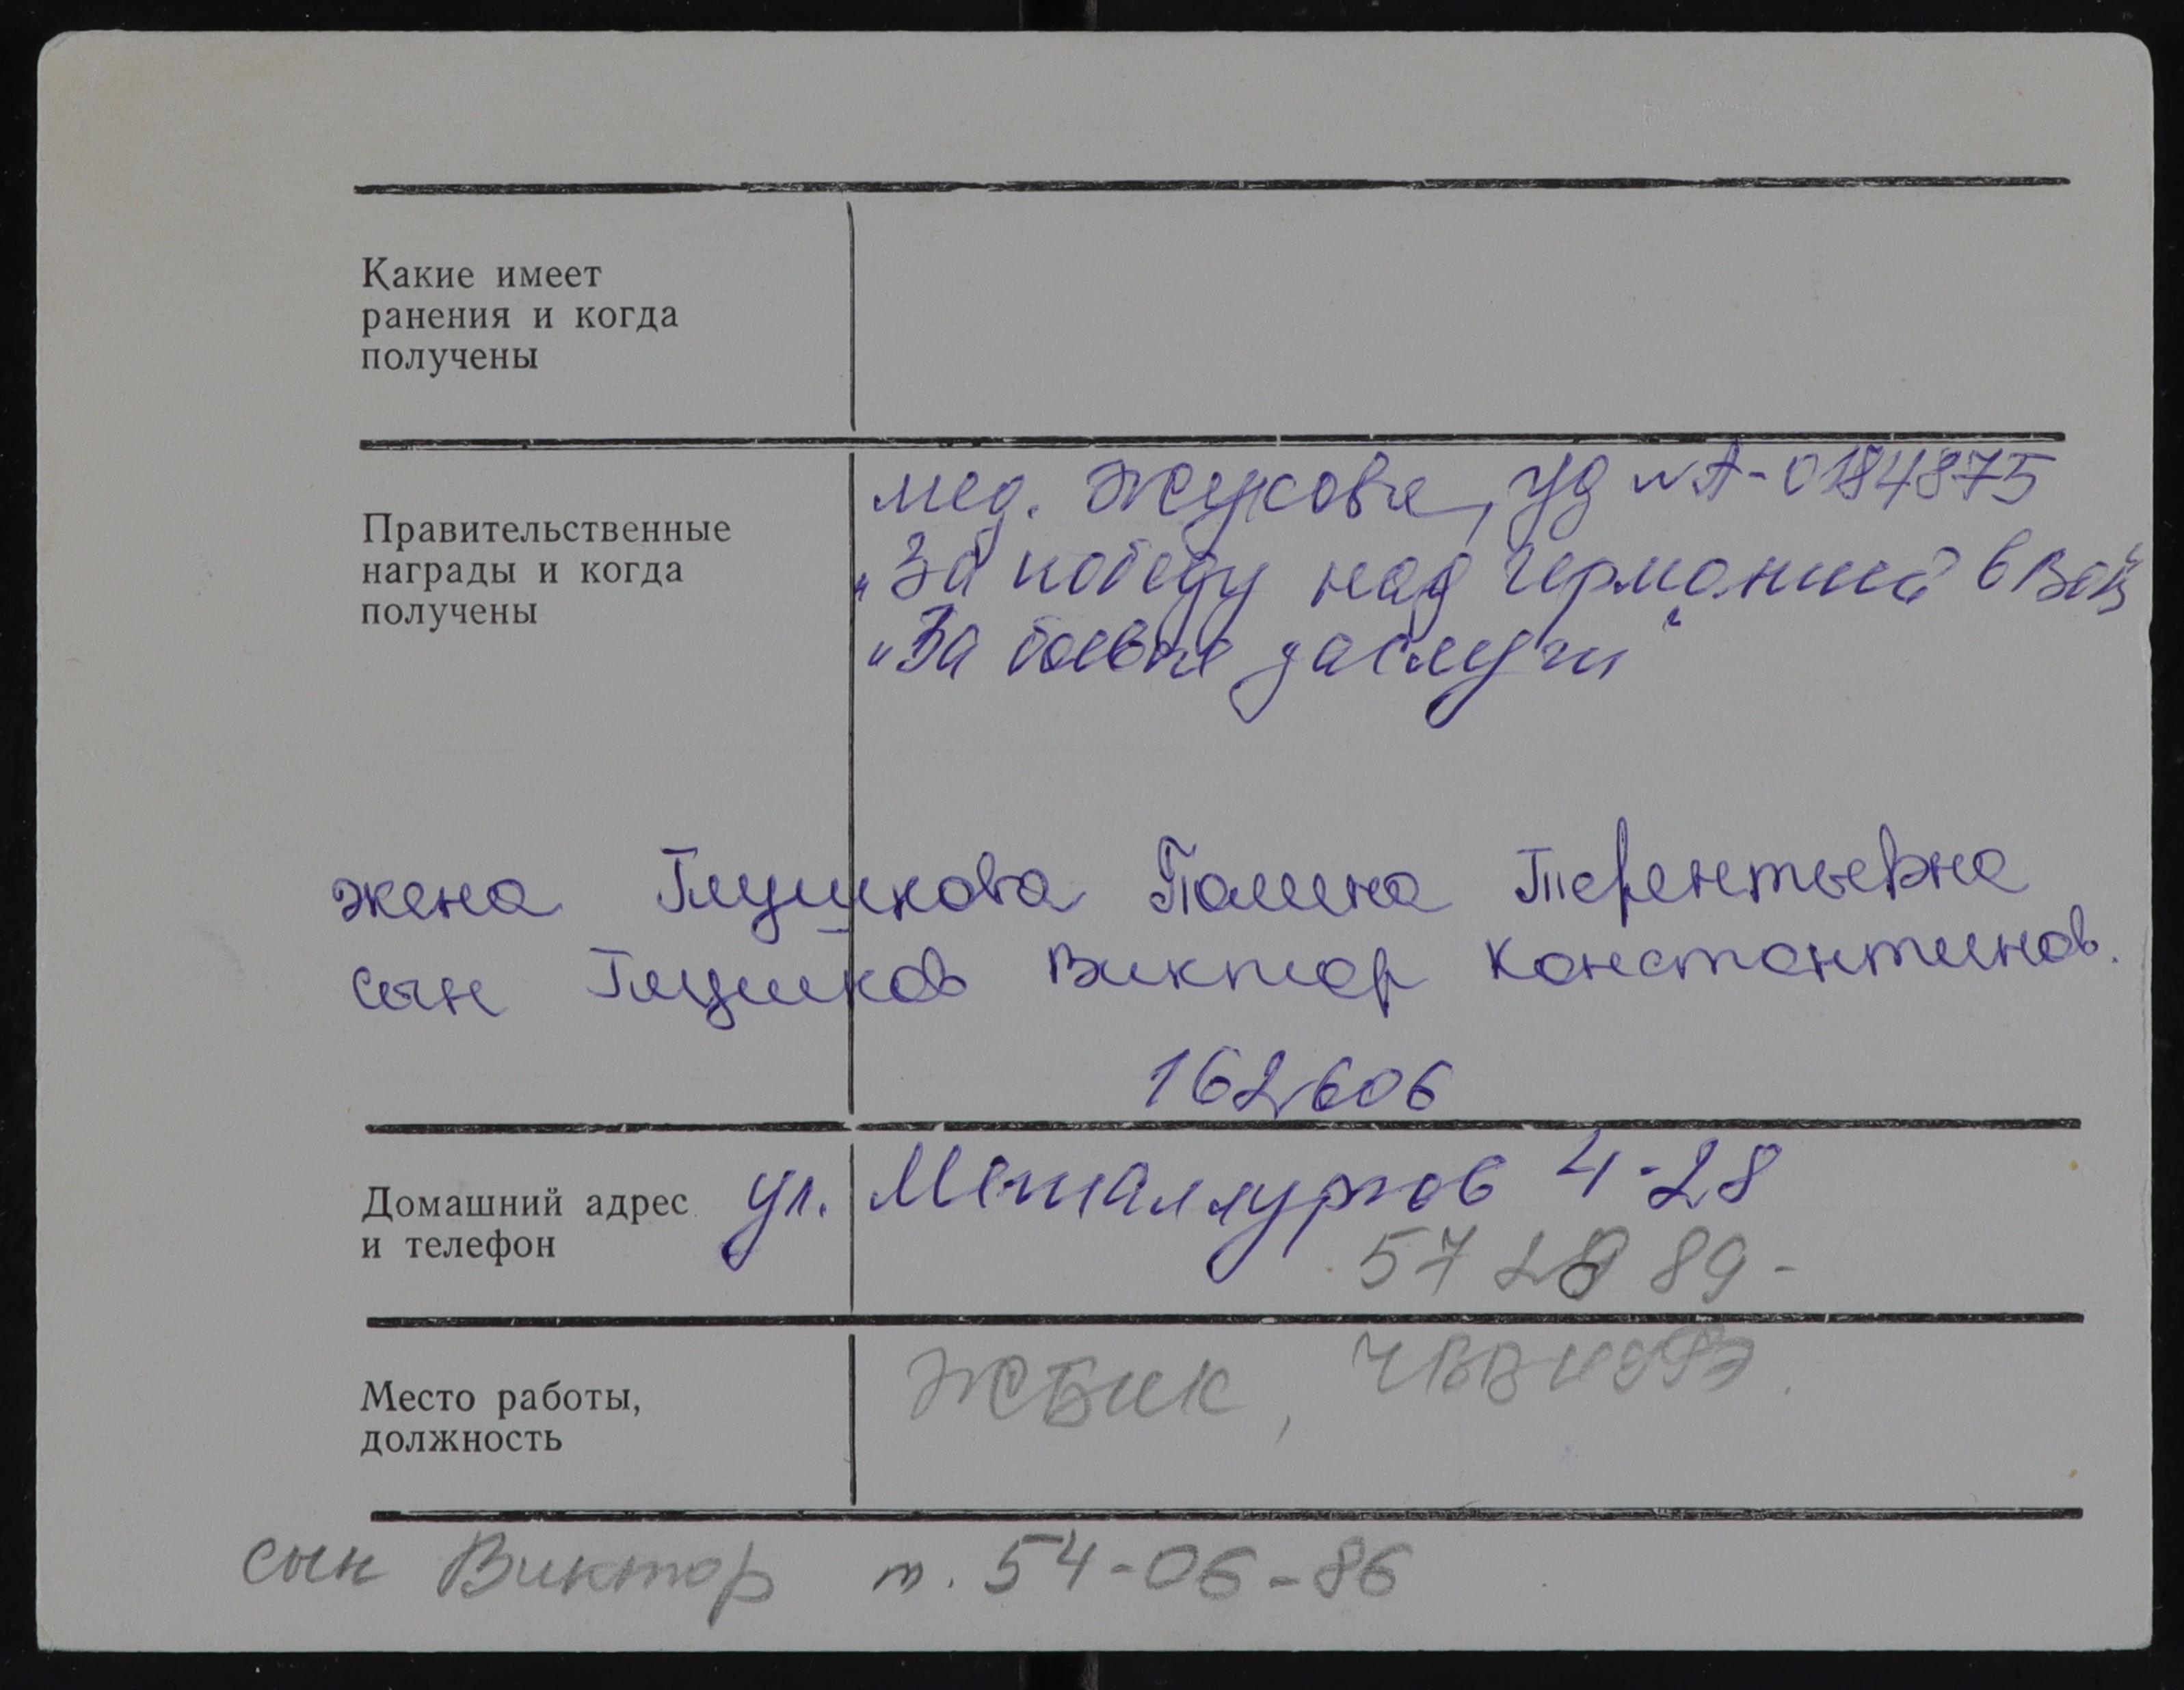 Какие имеет
ранения и когда
получены
Правительственные
награды и когда
получены
мед. Жукова, уд № А-0184875
„За победу над Германией в ВОВ“
„За боевые заслуги“
жена Глушкова Полина Терентьевна
сын Глушков Виктор Константинов.
162606
Домашний адрес
и телефон
ул. Металлургов 4-28
57 28 89-
Место работы,
должность
ЖБИК,
сын Виктор т. 54-06-86